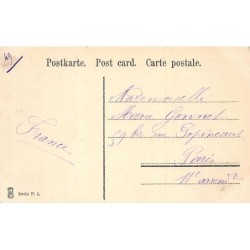 49
Postkarte. Post card. Carte postale.
Mademoiselle
Marie Gonnet
59 bis rue Popincourt
Paris
11e arrond
France
Serie P. 1.